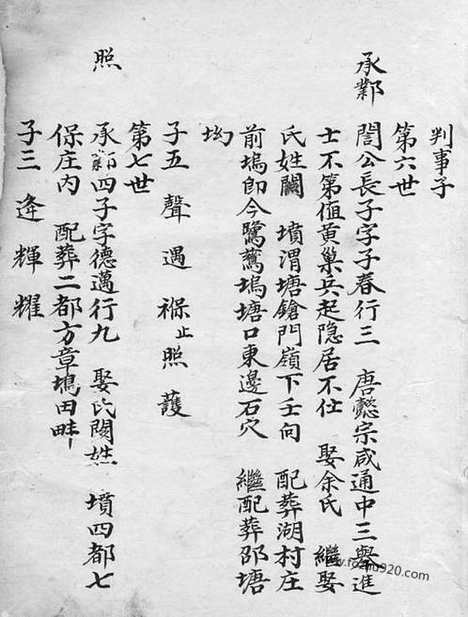 判事子
第六世
承鄴
誾公長子字子春行三 唐懿宗咸通中三舉進
士不第值黄巢兵起隐居不仕 娶余氏 繼娶
氏姓闕 墳渭塘鎗門嶺下壬向 配葬湖村庄
前塢即今鷺鷥塢塘口東邊石穴 繼配葬邵塘
坳
子五 聲 遇 祿止 照 護
第七世
照
承新四子字德邁行九 娶氏闕姓 墳四都七
保庄内 配葬二都方章塢田畔
子三 逄 輝 耀
www.fozhu920.com